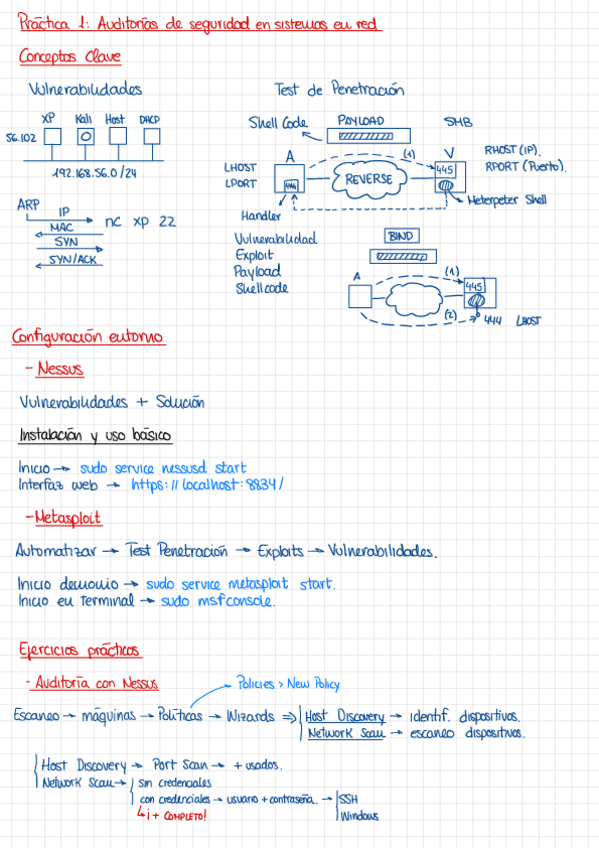 Práctica 1: Auditorías de seguridad en sistemas en red
Conceptos Clave
Vulnerabilidades
XP Kali Host DHCP
56.102
192.168.56.0/24
ARP
IP
MAC
SYN
SYN/ACK
nc xp 22
Test de Penetración
Shell Code PAYLOAD SMB
A (1) V RHOST (IP).
LHOST 445 RPORT (Puerto).
LPORT 444 REVERSE
Handler Meterpeter Shell
Vulnerabilidad BIND
Exploit
Payload
Shellcode
A (1) 445
(2) 444 LHOST
Configuración entorno
- Nessus
Vulnerabilidades + Solución
Instalación y uso básico
Inicio → sudo service nessusd start
Interfaz web → https://localhost:8834/
- Metasploit
Automatizar → Test Penetración → Exploits → Vulnerabilidades.
Inicio demonio → sudo service metasploit start.
Inicio en terminal → sudo msfconsole.
Ejercicios prácticos
- Auditoría con Nessus
Policies > New Policy
Escaneo → máquinas → Políticas → Wizards ⇒ Host Discovery → identif. dispositivos.
Network Scan → escaneo dispositivos.
Host Discovery → Port Scan → + usados.
Network Scan → sin credenciales
con credenciales → usuario + contraseña. → SSH
↳ ¡ + COMPLETO! Windows